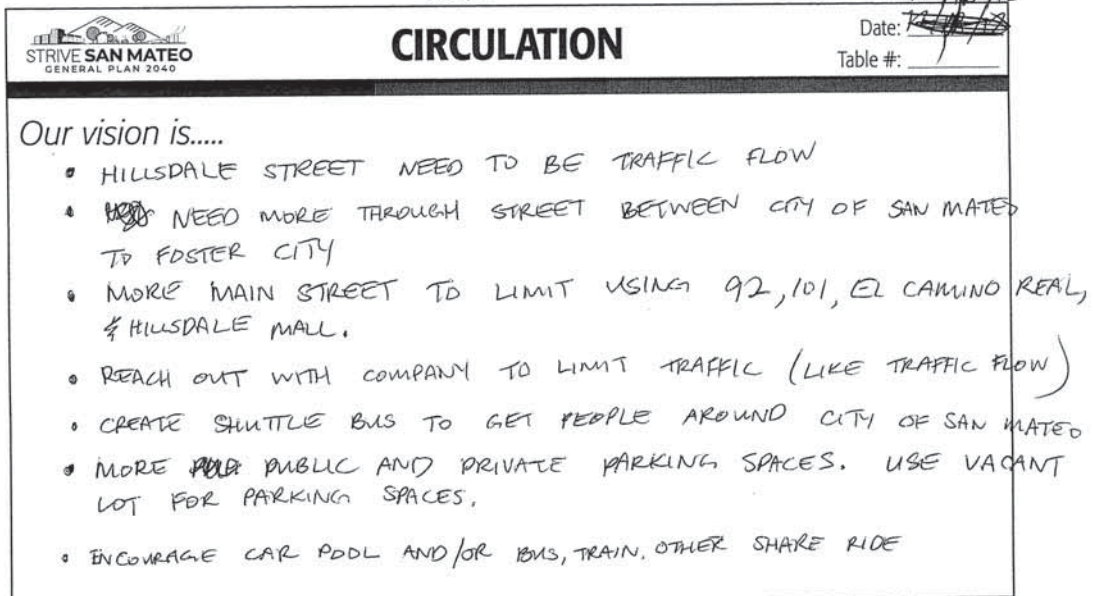 STRIVE SAN MATEO
GENERAL PLAN 2040
CIRCULATION
Date:
Table #:
Our vision is.....
• HILLSDALE STREET NEED TO BE TRAFFIC FLOW
• NEED MORE THROUGH STREET BETWEEN CITY OF SAN MATEO
TO FOSTER CITY
• MORE MAIN STREET TO LIMIT USING 92, 101, EL CAMINO REAL,
& HILLSDALE MALL.
• REACH OUT WITH COMPANY TO LIMIT TRAFFIC (LIKE TRAFFIC FLOW)
• CREATE SHUTTLE BUS TO GET PEOPLE AROUND CITY OF SAN MATEO
• MORE PUBLIC AND PRIVATE PARKING SPACES. USE VACANT
LOT FOR PARKING SPACES.
• ENCOURAGE CAR POOL AND/OR BUS, TRAIN. OTHER SHARE RIDE